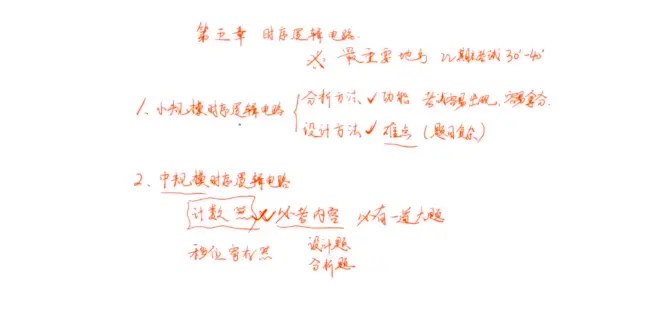 第五章 时序逻辑电路
※ 最重要地与 期末考试30'-40'
1、小规模时序逻辑电路 { 分析方法 ✓ 功能 考试容易出现,容易拿分
设计方法 ✓ 难点 (题目复杂)
2、中规模时序逻辑电路
计数器 必考内容 必有一道大题
移位寄存器 设计题
分析题